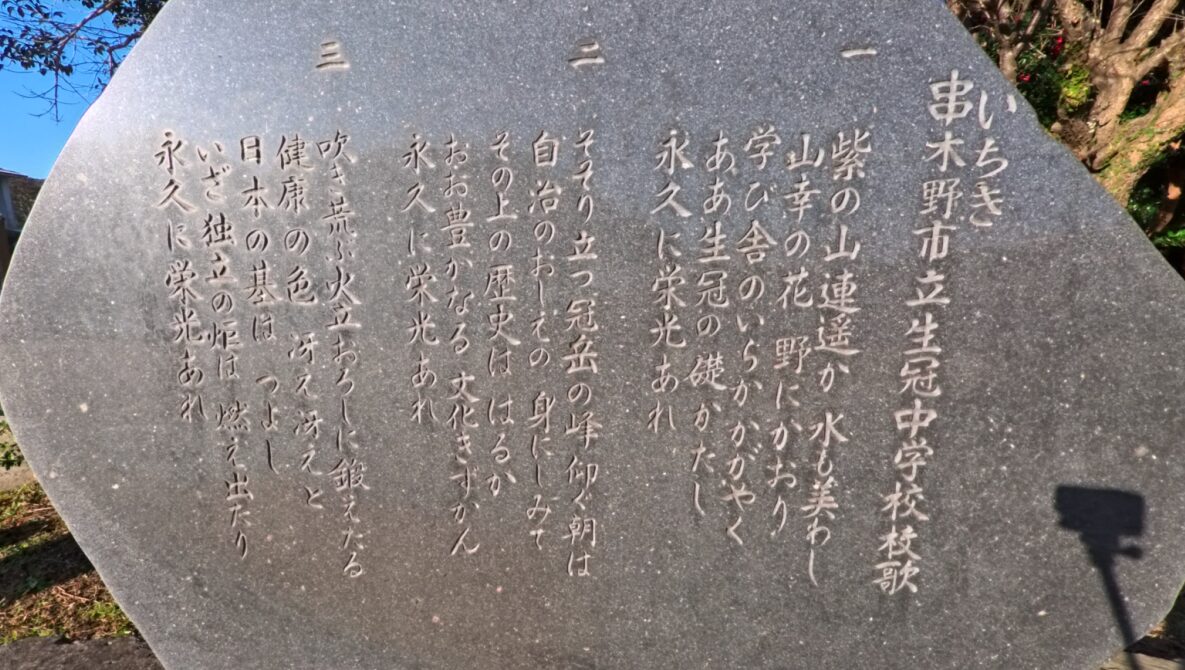 いちき
串木野市立生冠中学校校歌
一
紫の山連遥か 水も美わし
山幸の花 野にかおり
学び舎のいらかかがやく
ああ生冠の礎かたし
永久に栄光あれ
二
そそり立つ冠岳の峰仰ぐ朝は
自治のおしえの 身にしみて
その上の歴史は はるか
おお豊かなる文化きずかん
永久に栄光あれ
三
吹き荒ぶ火立おろしに鍛えたる
健康の色 冴え冴えと
日本の基は つよし
いざ独立の炬は 燃え出たり
永久に栄光あれ